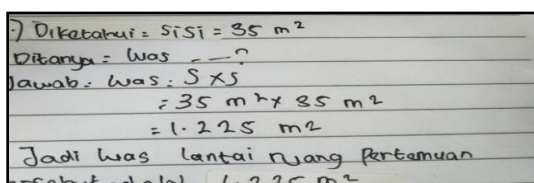 ·) Diketahui = sisi = 35 m²
Ditanya = Luas ---?
Jawab : Luas : S x S
= 35 m² x 35 m²
= 1.225 m2
Jadi luas lantai ruang Pertemuan
1.225 m²